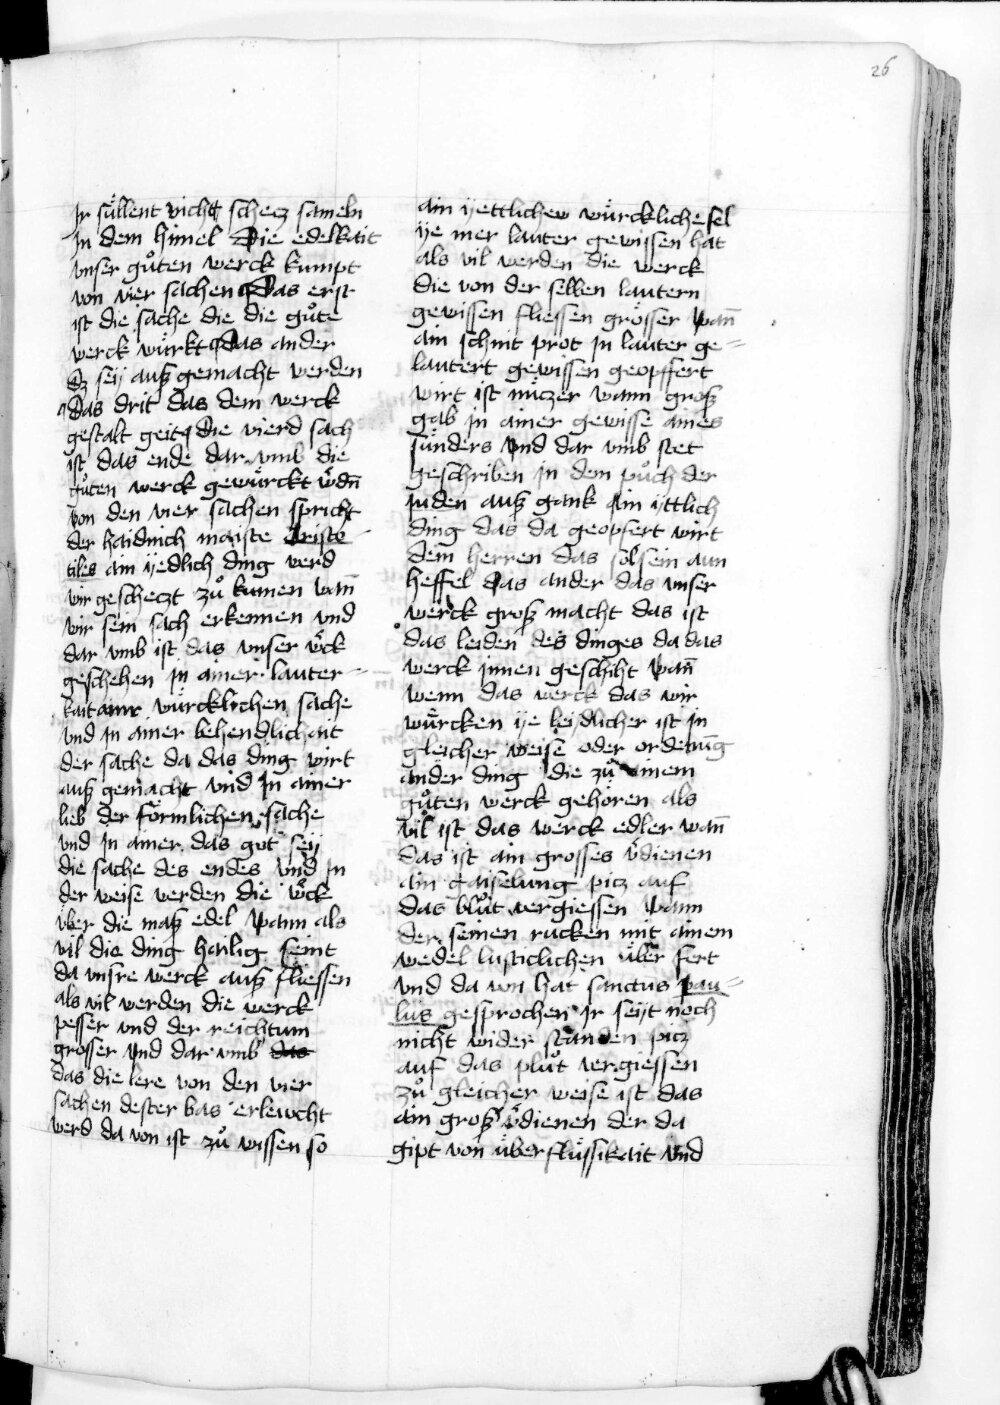 26
Jr su̎llent vicht schecz sameln
Jn dem himel Die edelkait
vnser gůten werck kumpt
von vier sachen Das erst
ist die sache die die gůte
werck wu̎rkt Das ander
dz seÿ auß gemacht werden
Das drit das dem werck
gestalt geit Die vierd sach
ist das ende dar vmb die
gůten werck gewu̎rckt w̎dn̄
von den vier sachen spricht
der haidnich maiste Aristo
tiles ain iÿedlich ding werd
wir gescheczt zů kumen wan̄
wir sein sach erkennen vnd
dar vmb ist das vnser w̎ck
geschehen in ainer lauter
kait ainr wu̎rcklichen sache
vnd in ainer behendlichait
der sache da das ding wirt
auß gemacht vnd Jn ainer
lieb der fo̎rmlichen sache
vnd in ainer das gut seÿ
die sache des endes vnd in
der weise werden die w̎ck
u̎ber die maß edel wann als
vil die ding hailig seint
da vnsre werck auß fliessen
als vil werden die werck
pesser vnd der reichtum
grosser vnd dar vmb das
das die lere von den vier
sachen dester bas erlewcht
werd da von ist zů wissen so
ain ÿettlichew wu̎rcklichesel
ÿe mer lauter gewissen hat
als vil werden die werck
die von der selben lautern
gewissen fliessen gro̎sser wan̄
ain schnit prot in lauter ge=
lautert gewissen geopffert
wirt ist nu̎czer wann groß
gab in ainer gewisse aines
su̎nders vnd dar vmb stet
geschriben in dem pu̎ch der
juden auß gank Ain ÿttlich
ding das da geopfert wirt
dem herren das sol sein aun
heffel Das ander das vnser
werck groß macht das ist
das leiden des dinges da das
werck jnnen geschiht wan̄
wenn das werck das wir
wu̎rcken ÿe leidlicher ist in
gleicher weise oder ordenūg
ander ding die zů ainem
gůten werck geho̎ren als
vil ist das werck edler wan̄
das ist ain grosses v̎dienen
ain gaiselung picz auf
das blůt vergiessen wann
der seinen rucken mit ainem
wedel lusticlichen u̎ber fert
vnd da von hat sanctus pau=
lus gesprochen Jr seÿt noch
nicht wider standen picz
auf das plůt vergiessen
zů gleicher weise ist das
ain groß v̎dienen der da
gipt von u̎berflu̎ssikait vnd